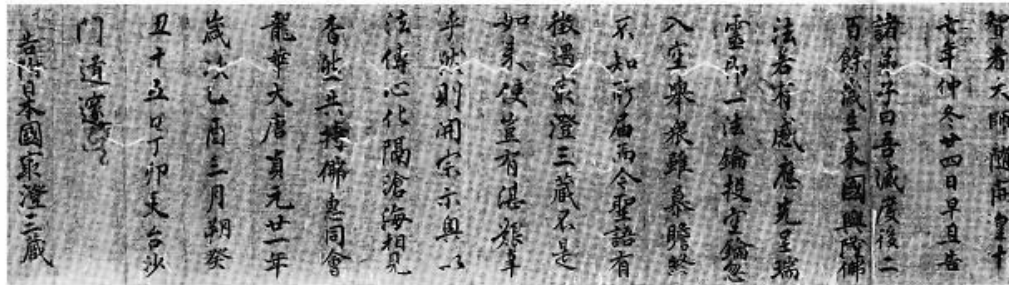 智者大師隨開皇十
七年仲冬廿四日早旦告
諸弟子曰吾滅度後二
百餘歲生東國興隆佛
法若有感應先呈瑞
靈即一法鑰投空鑰忽
入空舉衆雖慕瞻終
不知所届而今聖語有
徵遇最澄三藏不是
如來使豈有堪艱辛
乎然則開宗示奥以
法傳心化隔滄海相見
杳然共持佛惠同會
龍華大唐貞元廿一年
歲次乙酉三月朔癸
丑十五日丁卯天台沙
門道邃
告附日本國最澄三藏